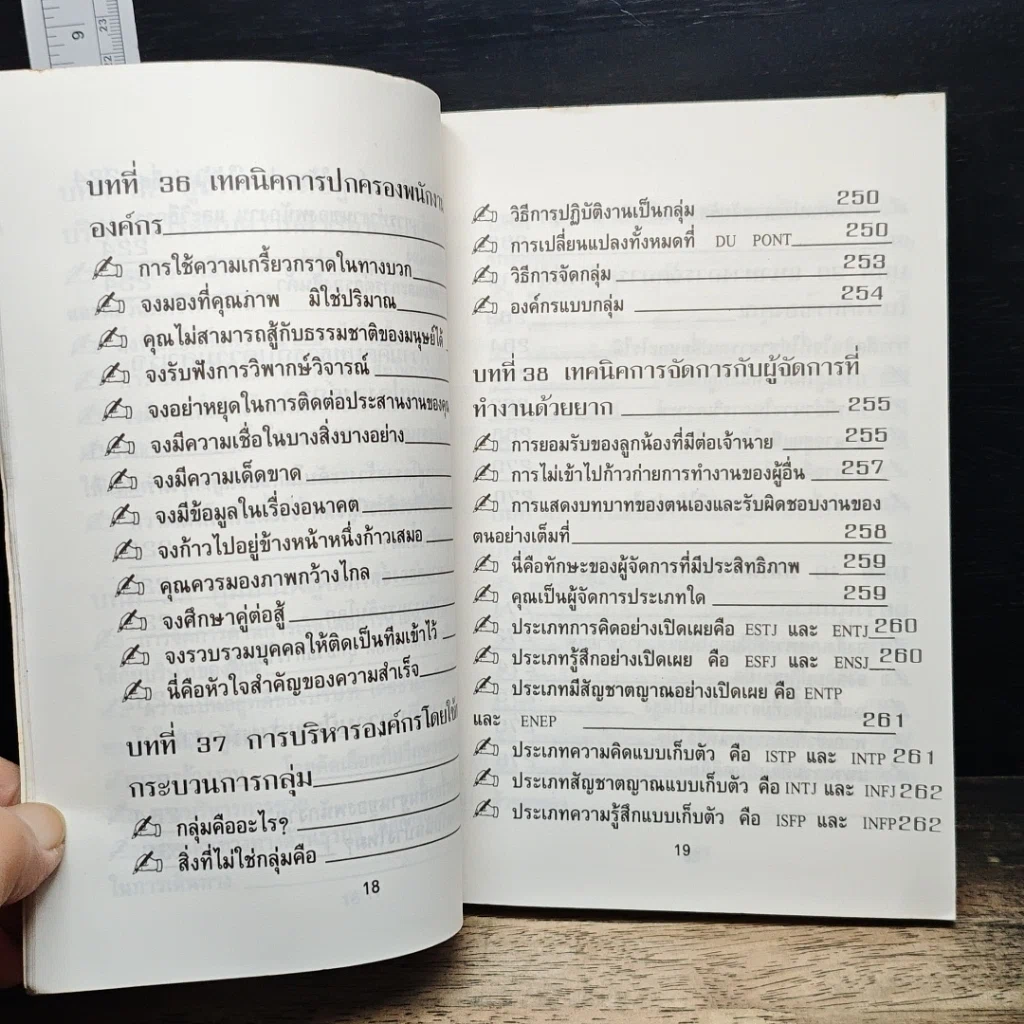 บทที่ 36 เทคนิคการปกครองพนักงาน
องค์กร
การใช้ความเกรี้ยวกราดในทางบวก
จงมองที่คุณภาพ มิใช่ปริมาณ
คุณไม่สามารถสู้กับธรรมชาติของมนุษย์ได้
จงรับฟังการวิพากษ์วิจารณ์
จงอย่าหยุดในการติดต่อประสานงานของคุณ
จงมีความเชื่อในบางสิ่งบางอย่าง
จงมีความเด็ดขาด
จงมีข้อมูลในเรื่องอนาคต
จงก้าวไปอยู่ข้างหน้าหนึ่งก้าวเสมอ
คุณควรมองภาพกว้างไกล
จงศึกษาคู่ต่อสู้
จงรวบรวมบุคคลให้ติดเป็นทีมเข้าไว้
นี่คือหัวใจสำคัญของความสำเร็จ
บทที่ 37 การบริหารองค์กรโดยใช้
กระบวนการกลุ่ม
กลุ่มคืออะไร?
สิ่งที่ไม่ใช่กลุ่มคือ
18
วิธีการปฏิบัติงานเป็นกลุ่ม 250
การเปลี่ยนแปลงทั้งหมดที่ DU PONT 250
วิธีการจัดกลุ่ม 253
องค์กรแบบกลุ่ม 254
บทที่ 38 เทคนิคการจัดการกับผู้จัดการที่
ทำงานด้วยยาก 255
การยอมรับของลูกน้องที่มีต่อเจ้านาย 255
การไม่เข้าไปก้าวก่ายการทำงานของผู้อื่น 257
การแสดงบทบาทของตนเองและรับผิดชอบงานของ
ตนอย่างเต็มที่ 258
นี่คือทักษะของผู้จัดการที่มีประสิทธิภาพ 259
คุณเป็นผู้จัดการประเภทใด 259
ประเภทการคิดอย่างเปิดเผยคือ ESTJ และ ENTJ 260
ประเภทรู้สึกอย่างเปิดเผย คือ ESFJ และ ENSJ 260
ประเภทมีสัญชาตญาณอย่างเปิดเผย คือ ENTP
และ ENEP 261
ประเภทความคิดแบบเก็บตัว คือ ISTP และ INTP 261
ประเภทสัญชาตญาณแบบเก็บตัว คือ INTJ และ INFJ 262
ประเภทความรู้สึกแบบเก็บตัว คือ ISFP และ INFP 262
19
9
23
22